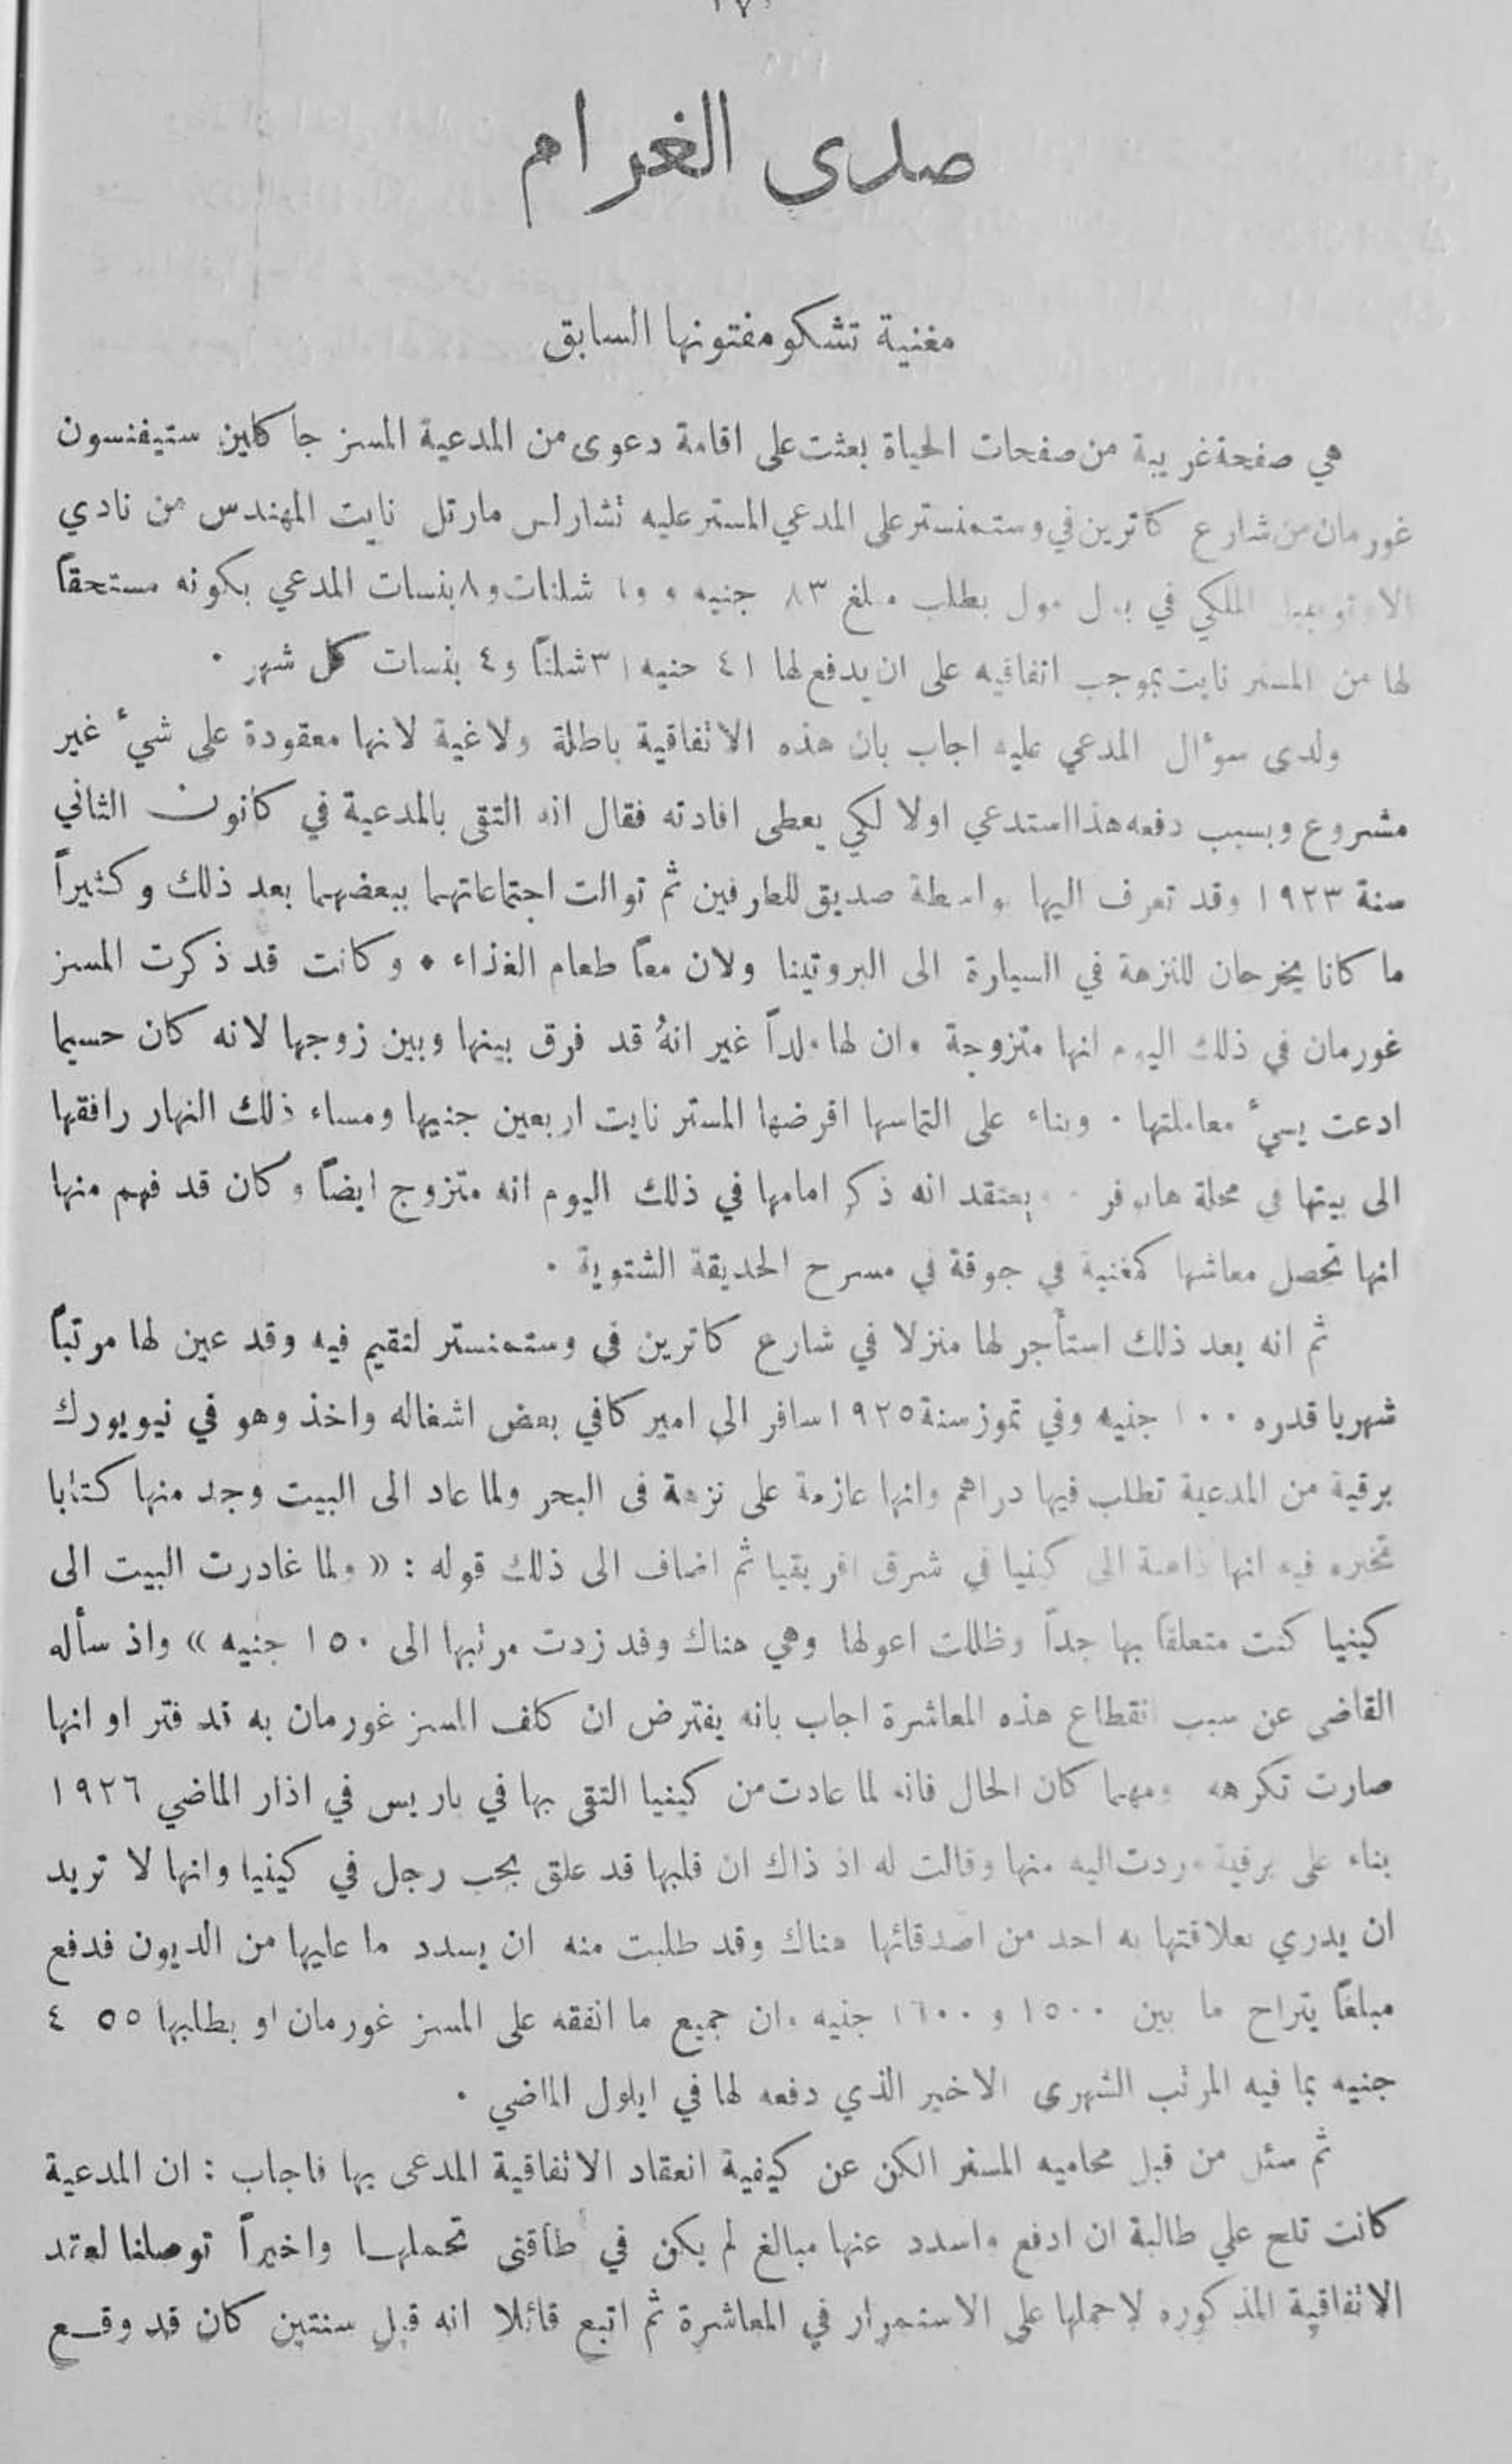 صدى الغرام
مغنية تشكو مفتونها السابق
هي صفحة غريبة من صفحات الحياة بعثت على اقامة دعوى من المدعية المسز جا كلين ستيفنسون
غورمان من شارع كاترين في وستمنستر على المدعي المستر عليه تشارلس مارتل نايت المهندس من نادي
الملكي في بال مول بطلب مبلغ ٨٣ جنيه و شلنات و ٨ بنسات المدعي بكونه مستحقاً
لها من المستر نايت بموجب اتفاقيه على ان يدفع لها ٤١ جنيه ١٣ شلناً و ٤ بنسات كل شهر ٠
ولدى سؤال المدعي عليه اجاب بان هذه الاتفاقية باطلة ولاغية لانها معقودة على شيء غير
مشروع وبسبب دفعه هذا استدعي اولا لكي يعطى افادته فقال انه التقى بالمدعية في كانون الثاني
سنة ١٩٢٣ وقد تعرف اليها بواسطة صديق للطرفين ثم توالت اجتماعاتهما ببعضهما بعد ذلك وكثيراً
ما كانا يخرجان للنزهة في السيارة الى البروتينا ولان معاً طعام الغذاء ٠ وكانت قد ذكرت المسز
غورمان في ذلك اليوم انها متزوجة وان لها ولداً غير انهُ قد فرق بينها وبين زوجها لانه كان حسيما
ادعت يسيء معاملتها ٠ وبناء على التماسها اقرضها المستر نايت اربعين جنيها ومساء ذلك النهار رافقها
الى بيتها في محلة يعتقد انه ذكر امامها في ذلك اليوم انه متزوج ايضاً وكان قد فهم منها
انها تحصل معاشها كمغنية في جوقة في مسرح الحديقة الشتوية ٠
ثم انه بعد ذلك استأجر لها منزلا في شارع كاترين في وستمنستر لتقيم فيه وقد عين لها مرتباً
شهريا قدره ١٠٠ جنيه وفي تموز سنة ١٩٢٥ سافر الى اميركافي بعض اشغاله واخذ وهو في نيويورك
برقية من المدعية تطلب فيها دراهم وانها عازمة على نزهة في البحر ولما عاد الى البيت وجد منها كتابا
تخبره فيه انها ذاهبة الى كينيا في شرق افريقيا ثم اضاف الى ذلك قوله : « ولما غادرت البيت الى
كينيا كنت متعلقا بها جداً وظللت اعولها وهي هناك وقد زدت مرتبها الى ١٥٠ جنيه » واذ سأله
القاضى عن سبب انقطاع هذه المعاشرة اجاب بانه يفترض ان كلف المسز غورمان به قد فتر او انها
صارت تكرهه ومهما كان الحال فانه لما عادت من كينيا التقى بها في باريس في اذار الماضي ١٩٢٦
بناء على برقية وردت اليه منها وقالت له اذ ذاك ان قلبها قد علق بحب رجل في كينيا وانها لا تريد
ان يدري بعلاقتها به احد من اصدقائها هناك وقد طلبت منه ان يسدد ما عليها من الديون فدفع
مبلغاً يتراح ما بين ١٥٠٠ و ١٦٠٠ جنيه وان جميع ما انفقه على المسز غورمان او بطلبها ٥٥ ٤
جنيه بما فيه المرتب الشهرى الاخير الذي دفعه لها في ايلول الماضي ٠
ثم سئل من قبل محاميه المستر الكن عن كيفية انعقاد الاتفاقية المدعى بها فاجاب : ان المدعية
كانت تلح علي طالبة ان ادفع واسدد عنها مبالغ لم يكن في طاقتى تحملها واخيراً توصلنا لعقد
الاتفاقية المذكوره لاحملها على الاستمرار في المعاشرة ثم اتبع قائلا انه قبل سنتين كان قد وقع